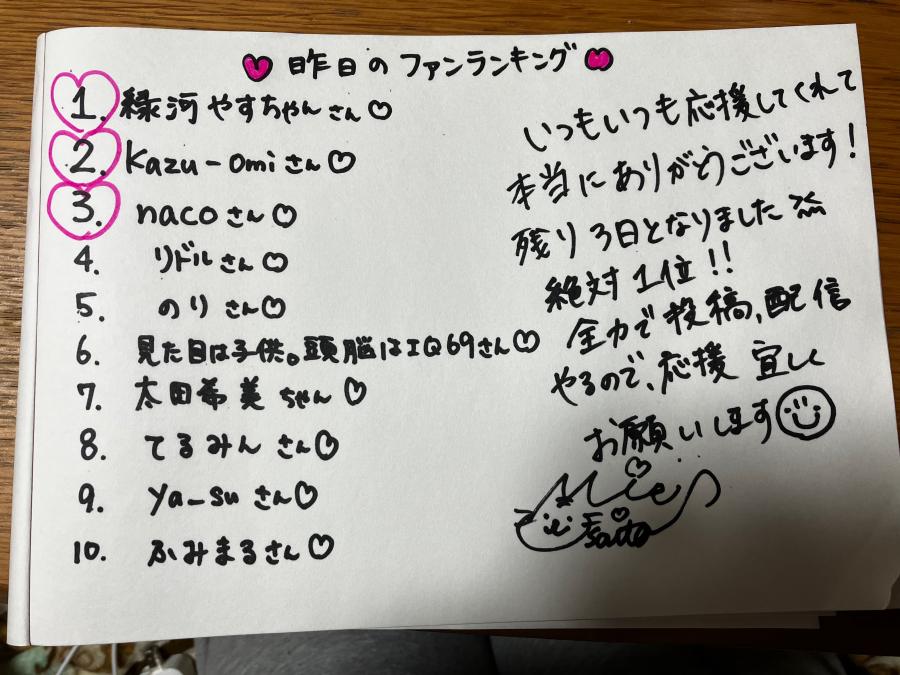 昨日のファンランキング
1. 緑河やすちゃんさん♡
2. Kazu-omiさん♡
3. nacoさん♡
4. リドルさん♡
5. のりさん♡
6. 見た目は子供。頭脳はIQ69さん♡
7. 太田希美ちゃん♡
8. てるみんさん♡
9. ya-suさん♡
10. ふみまるさん♡
いつもいつも応援してくれて
本当にありがとうございます!
残り3日となりました
絶対1位!!
全力で投稿、配信
やるので、応援宜しく
お願いします
Mie
Saito